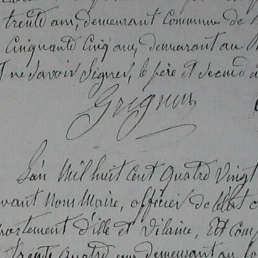 trente ans, demeurant Commune de
Cinquante Cinq ans, demeurant au
ne Savoir Signer, le père et Second
Grignon
L'an Mil huit Cent quatre Vingt
vant Nous Maire, officier de l'état
partement d'Ille et Vilaine, Est Comp
trente quatre ans demeurant au